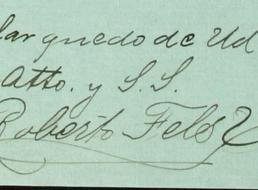 lar quedo de Ud
Atto. y S. S.
Roberto Felós